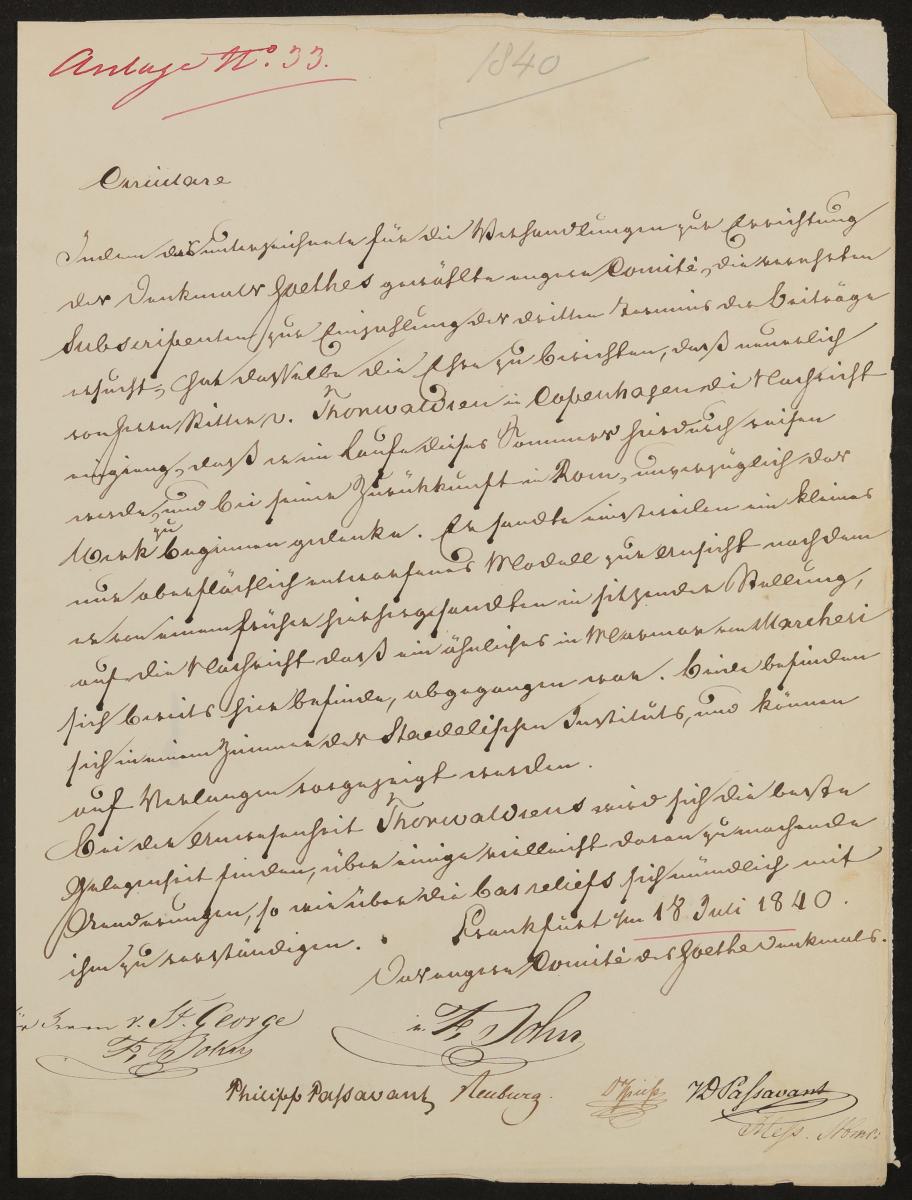 Anlage No. 33.
1840
Circulare
Indem das unterzeichnete für die Verhandlungen zur Errichtung
des Denkmals Goethes gewählte engere Comité, die verehrten
Subscribenten zur Einzahlung des dritten Termins der Beiträge
ersucht, hat dasselbe die Ehre zu berichten, daß neuerlich
von Herrn Ritter v. Thorwaldsen in Copenhagen die Nachricht
einging, daß er im Laufe dieses Sommers hierdurch reisen
werde, und bei seiner Zurückkunft in Rom, unverzüglich das
Werk zu beginnen gedenke. Er sandte einstweilen ein kleines
nur oberflächlich entworfenes Modell zur Ansicht nachdem
er von einem früher hierhergesandten in sitzender Stellung,
auf die Nachricht daß ein ähnliches in Marmor von Marchesi
sich bereits hier befinde, abgegangen war. Beide befinden
sich in einem Zimmer des Staedelischen Instituts, und können
auf Verlangen vorgezeigt werden.
Bei der Anwesenheit Thorwaldsens wird sich die beste
Gelegenheit finden, über einige vielleicht daran zu machende
Aenderungen, so wie über die basreliefs sich mündlich mit
ihm zu verständigen.
Frankfurt 18 Juli 1840.
Das engere Comité des Goethe Denkmals.
für Herrn v. St. George
F. John
F. John
Philipp Passavant
Neuburg.
JD Passavant
Hess.